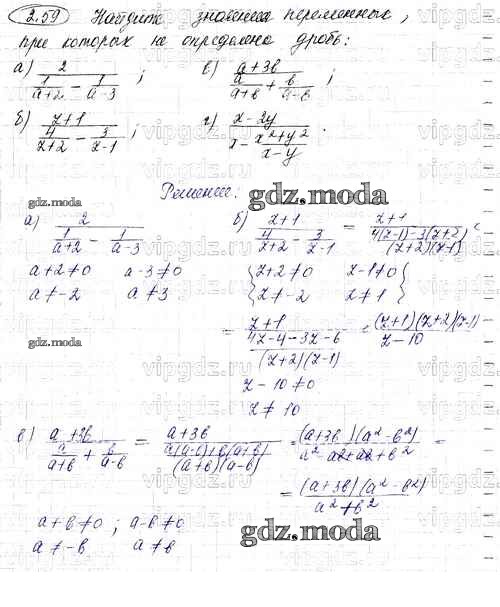 2.59 Найдите значения переменных,
при которых не определена дробь:
а) 2 / (1/(a+2) − 1/(a−3)); в) (a+3b) / (a/(a+b) + b/(a−b));
б) (z+1) / (4/(z+2) − 3/(z−1)); г) (x−2y) / (x − (x²+y²)/(x−y)).
Решение.
а) 2 / (1/(a+2) − 1/(a−3)) б) (z+1) / (4/(z+2) − 3/(z−1)) = (z+1) / ((4(z−1)−3(z+2))/((z+2)(z−1))) =
a+2≠0 a−3≠0 {z+2≠0 z−1≠0}
a≠−2 a≠3 {z≠−2 z≠1}
= (z+1) / ((4z−4−3z−6)/((z+2)(z−1))) = (z+1)(z+2)(z−1) / (z−10)
z−10≠0
z≠10
в) (a+3b) / (a/(a+b) + b/(a−b)) = (a+3b) / ((a(a−b)+b(a+b))/((a+b)(a−b))) = (a+3b)(a²−b²) / (a²−ab+ab+b²) =
= (a+3b)(a²−b²) / (a²+b²)
a+b≠0; a−b≠0
a≠−b a≠b
gdz.moda
gdz.moda
gdz.moda
gdz.moda
gdz.moda
gdz.moda
vipgdz